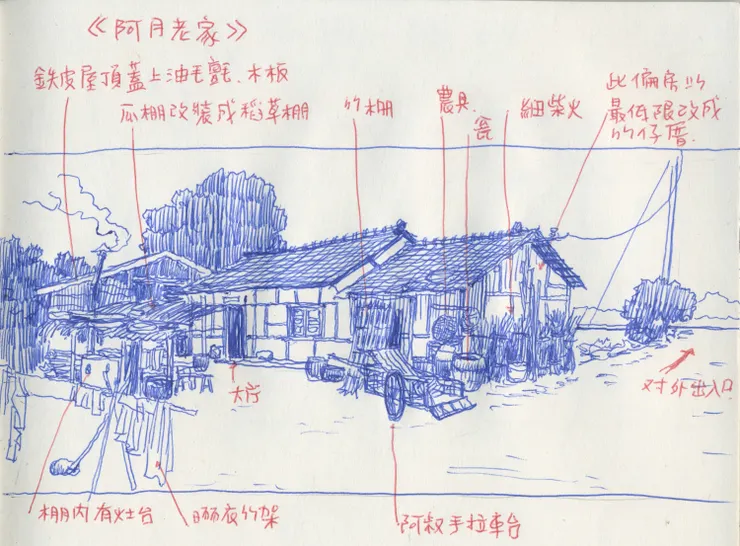 《阿月老家》
鉄皮屋頂蓋上油毛氈、木板
瓜棚改裝成稻草棚
竹棚
農具、
瓮
細柴火
此偏房以
最低限改成
竹仔厝.
大厅
对外出入口
棚内有灶台
晒衣竹架
阿叔手拉車台